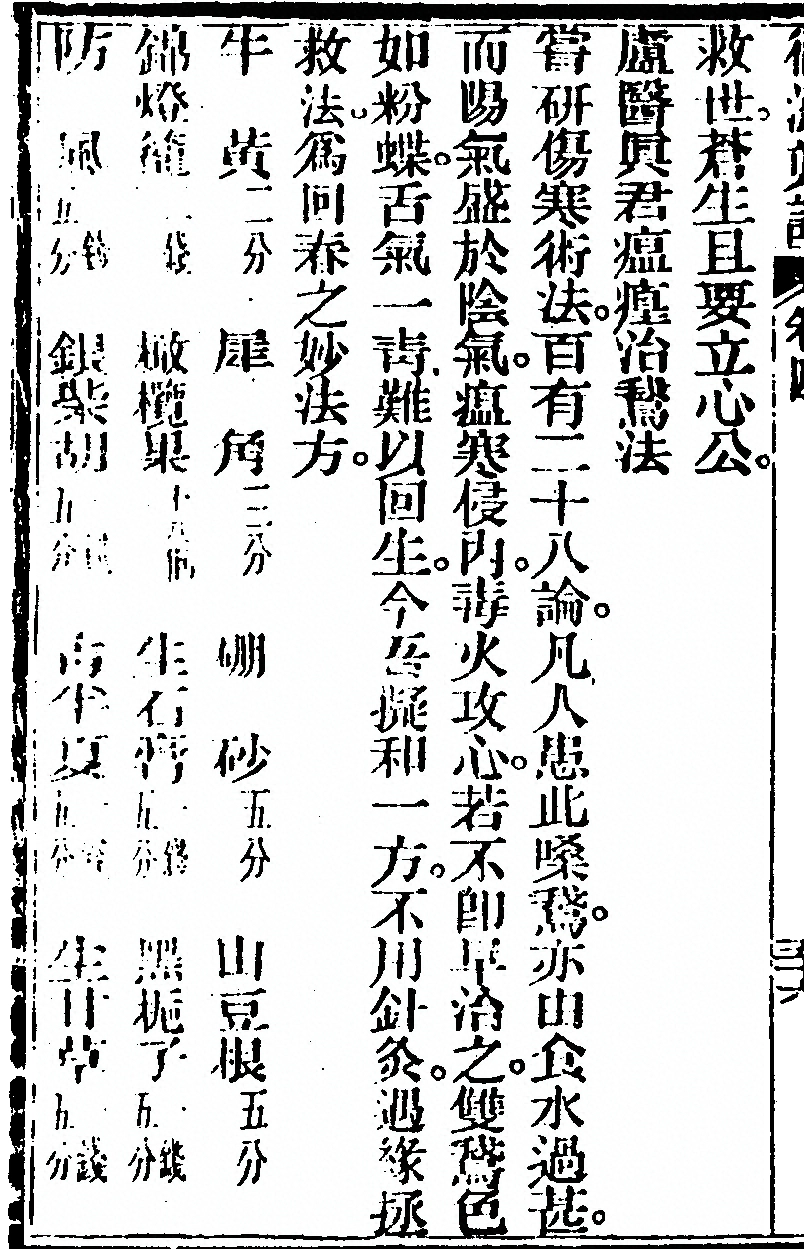 卷四
救世。蒼生且要立心公。
廬醫眞君瘟瘽治鵞法
嘗研傷寒術法。百有二十八論。凡人患此嗓鵞。亦由食水過甚。
而陽氣盛於陰氣。瘟寒侵內。毒火攻心。若不卽早治之。雙鵞色
如粉蝶。舌氣一靑難以回生。今吾擬和一方。不用針灸。遇緣拯
救法。爲回春之妙法方。
牛黃二分 犀角分 硼砂五分 山豆根五分
錦燈籠一錢 橄欖果十個 生石膏一錢五分 黑梔子一錢五分
防風錢五分 銀柴胡錢五分 南半夏錢五分 生甘草一錢五分